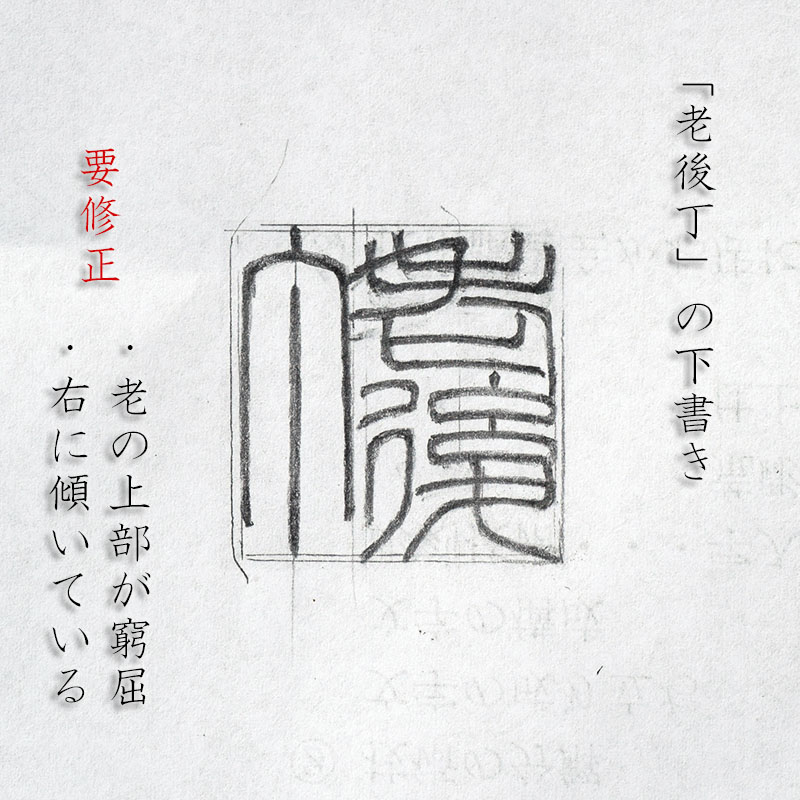 「老後丁」の下書き
老後丁
要修正
・老の上部が窮屈
・右に傾いている